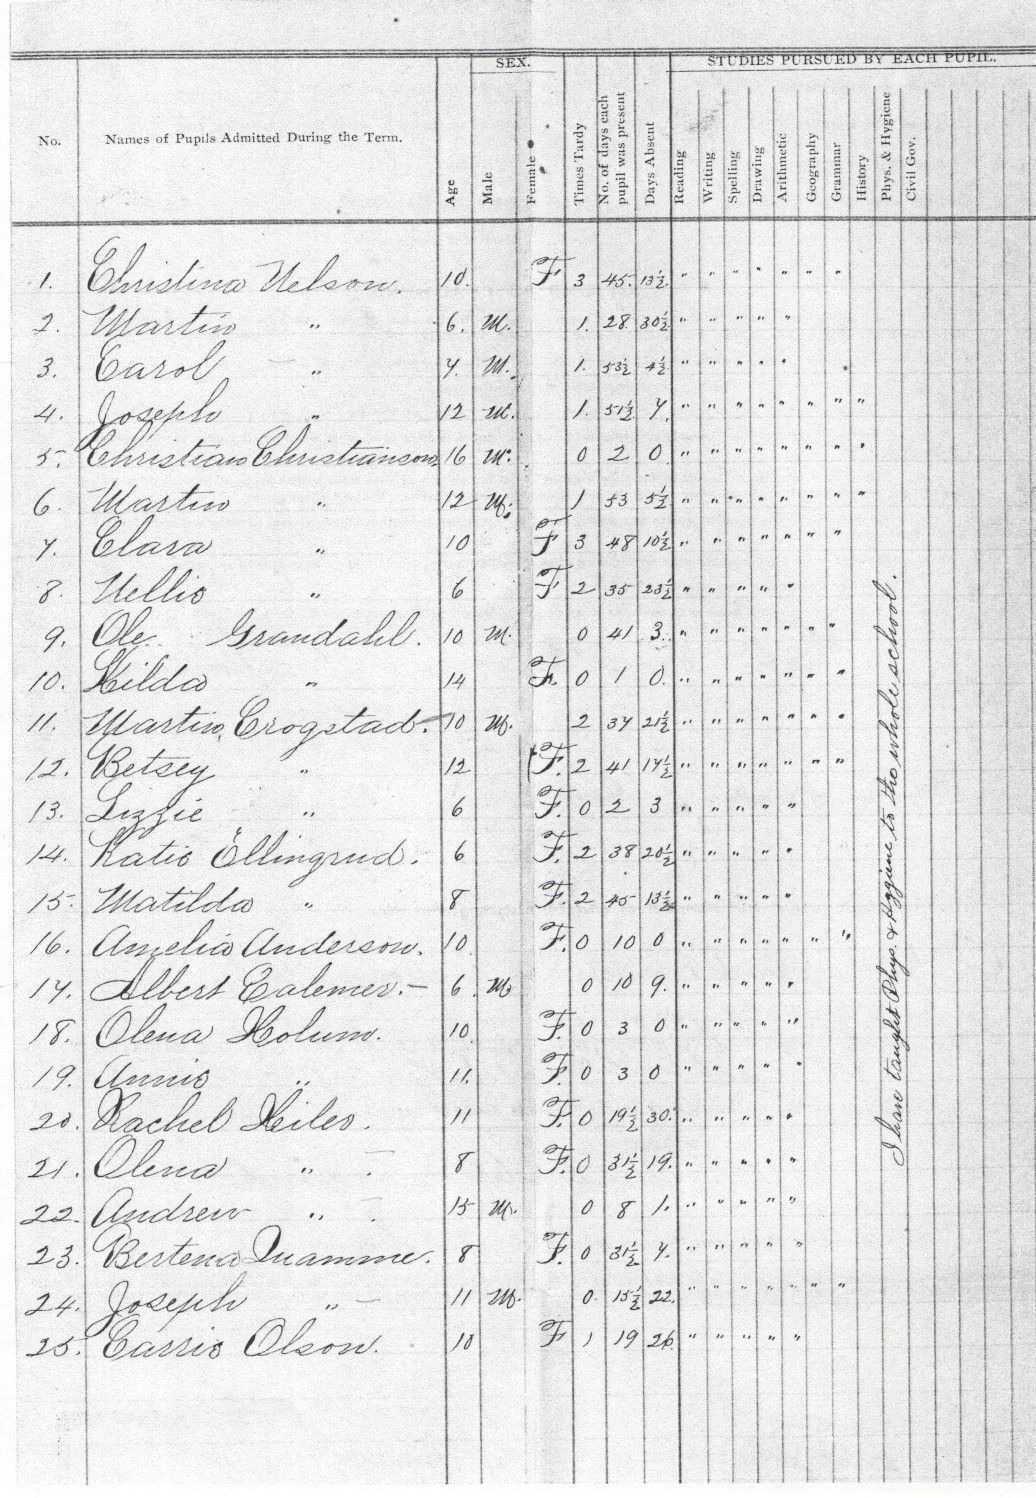 SEX.
STUDIES PURSUED BY EACH PUPIL.
No. Names of Pupils Admitted During the Term. Age Male Female Times Tardy No. of days each pupil was present Days Absent Reading Writing Spelling Drawing Arithmetic Geography Grammar History Phys. & Hygiene Civil Gov.
1. Christina Nelson. 10. F 3 45. 13½. " " " " " " "
2. Martin " 6. M. 1. 28. 30½ " " " " "
3. Carol " 7. M. 1. 53½ 4½ " " " " "
4. Joseph " 12 M. 1. 51½ 7. " " " " " " " "
5. Christian Christianson 16 M. 0 2 0 " " " " " " " "
6. Martin " 12 M. 1 53 5½ " " " " " " " "
7. Clara " 10 F 3 48 10½ " " " " " " "
8. Nellie " 6 F 2 35 23½ " " " " "
9. Ole Grandahl. 10 M. 0 41 3. " " " " " " "
10. Hilda " 14 F. 0 1 0. " " " " " " "
11. Martin Crogstad. 10 M. 2 37 21½ " " " " " " "
12. Betsey " 12 F. 2 41 17½ " " " " " " "
13. Lizzie " 6 F. 0 2 3 " " " " "
14. Katie Ellingrud. 6 F. 2 38 20½ " " " " "
15. Matilda " 8 F. 2 45 13½ " " " " "
16. Amelia Anderson. 10. F. 0 10 0 " " " " " " "
17. Albert Calemer. 6. M 0 10 9. " " " " "
18. Olena Holum. 10. F. 0 3 0 " " " " "
19. Annie " 11. F. 0 3 0 " " " " "
20. Rachel Hiler. 11 F. 0 19½ 30. " " " " "
21. Olena " 8 F. 0 31½ 19. " " " " "
22. Andrew " 15 M. 0 8 1. " " " " "
23. Bertena Quamme. 8 F. 0 31½ 7. " " " " "
24. Joseph " 11 M. 0. 15½ 22. " " " " " " "
25. Carrie Olson. 10 F 1 19 26 " " " " "
I have taught Phys. & Hygiene to the whole school.